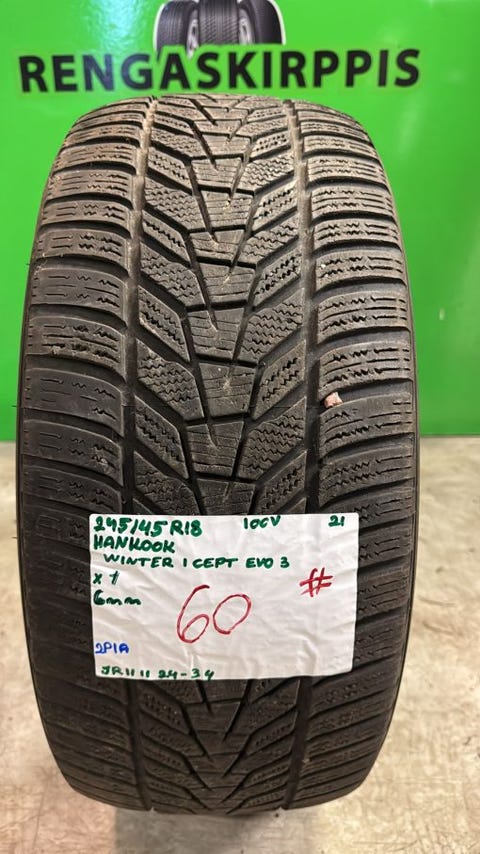 RENGASKIRPPIS
245/45 R18 100V 21
HANKOOK
WINTER I CEPT EVO 3
x 1 #
6mm 60
2P1A
JR 11 11 24-34